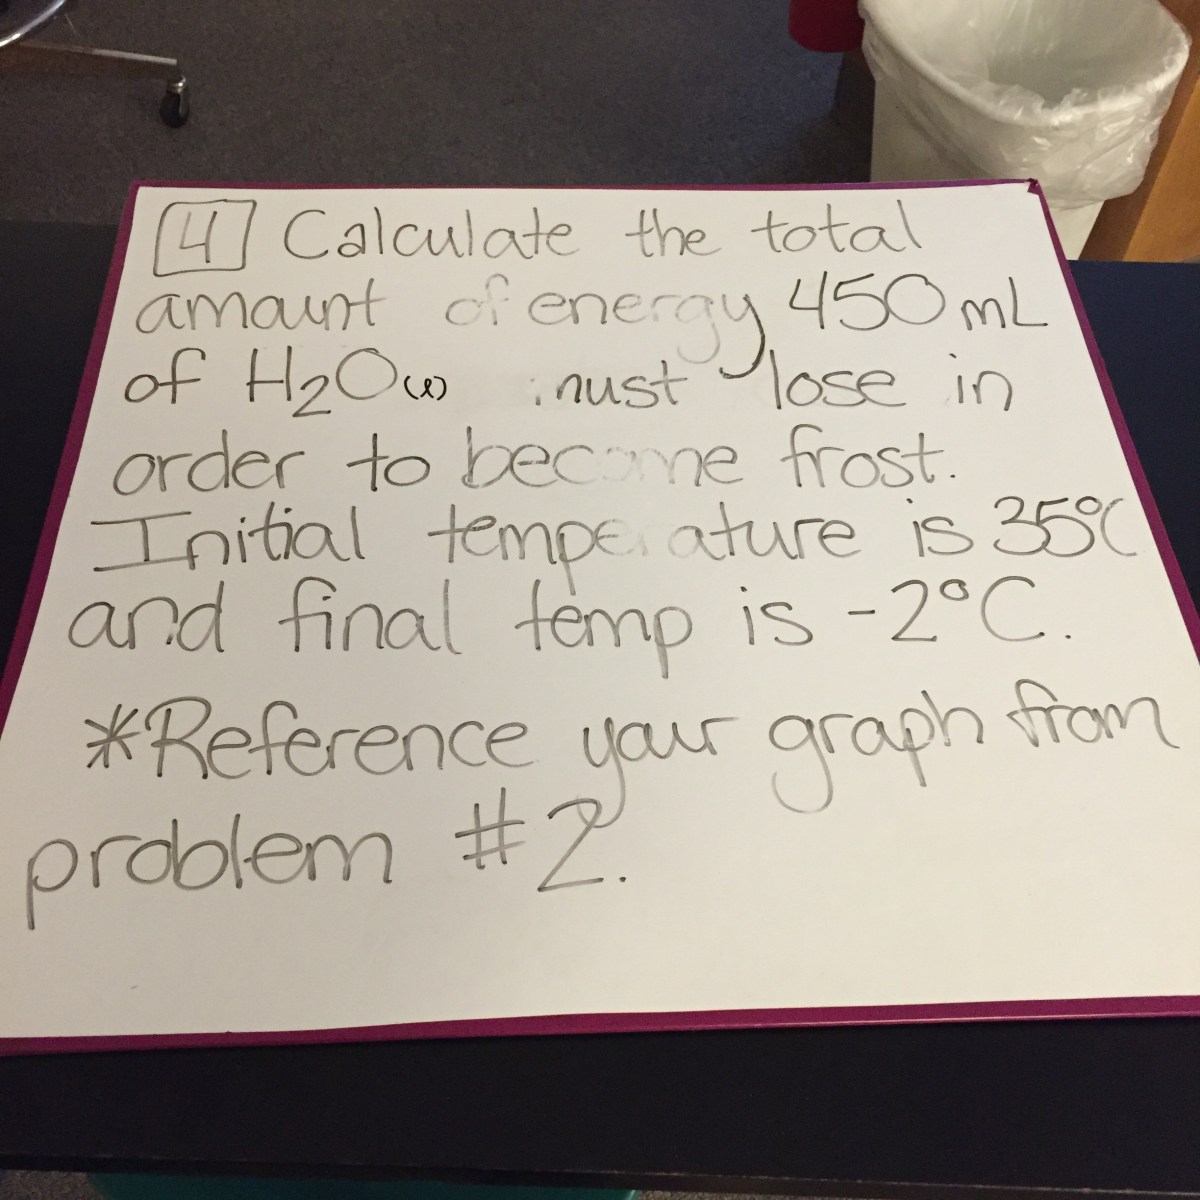 4 Calculate the total
amount of energy 450 mL
of H2O(l) must lose in
order to become frost.
Initial temperature is 35°C
and final temp is -2°C.
*Reference your graph from
problem #2.